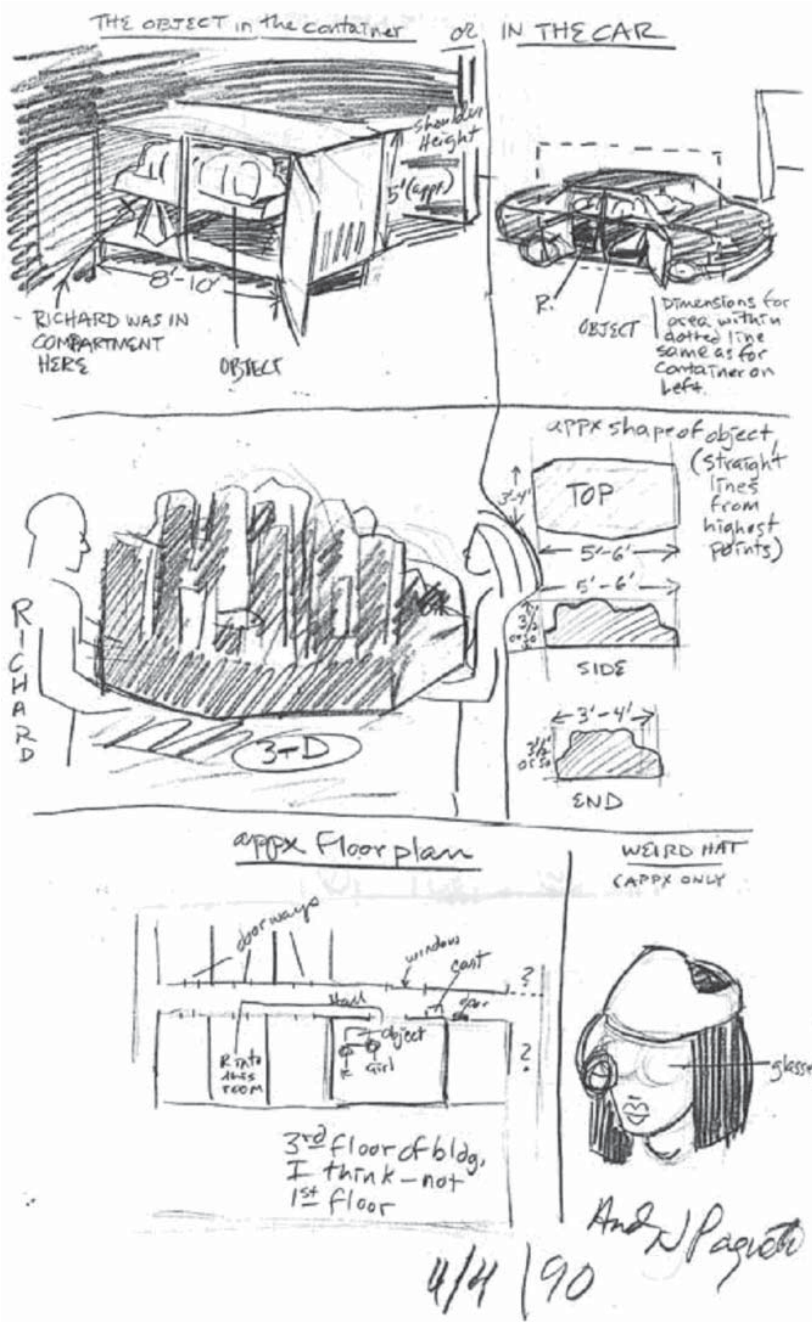 THE OBJECT in the container
or
IN THE CAR
shoulder
Height
5' (appx.)
8'-10'
RICHARD WAS IN
COMPARTMENT
HERE
OBJECT
R.
OBJECT
Dimensions for
area within
dotted line
same as for
container on
left.
appx shape of object
(straight
lines
from
highest
points)
3'-4'
TOP
5'-6'
5'-6'
3 1/2'
or so
SIDE
3'-4'
3 1/2'
or so
END
RICHARD
3-D
appx Floorplan
doorways
window
cart
?
Hall
door
object
?
R into
this
room
R
Girl
3rd floor of bldg,
I think - not
1st floor
WEIRD HAT
(APPX ONLY
glasse
4/4/90